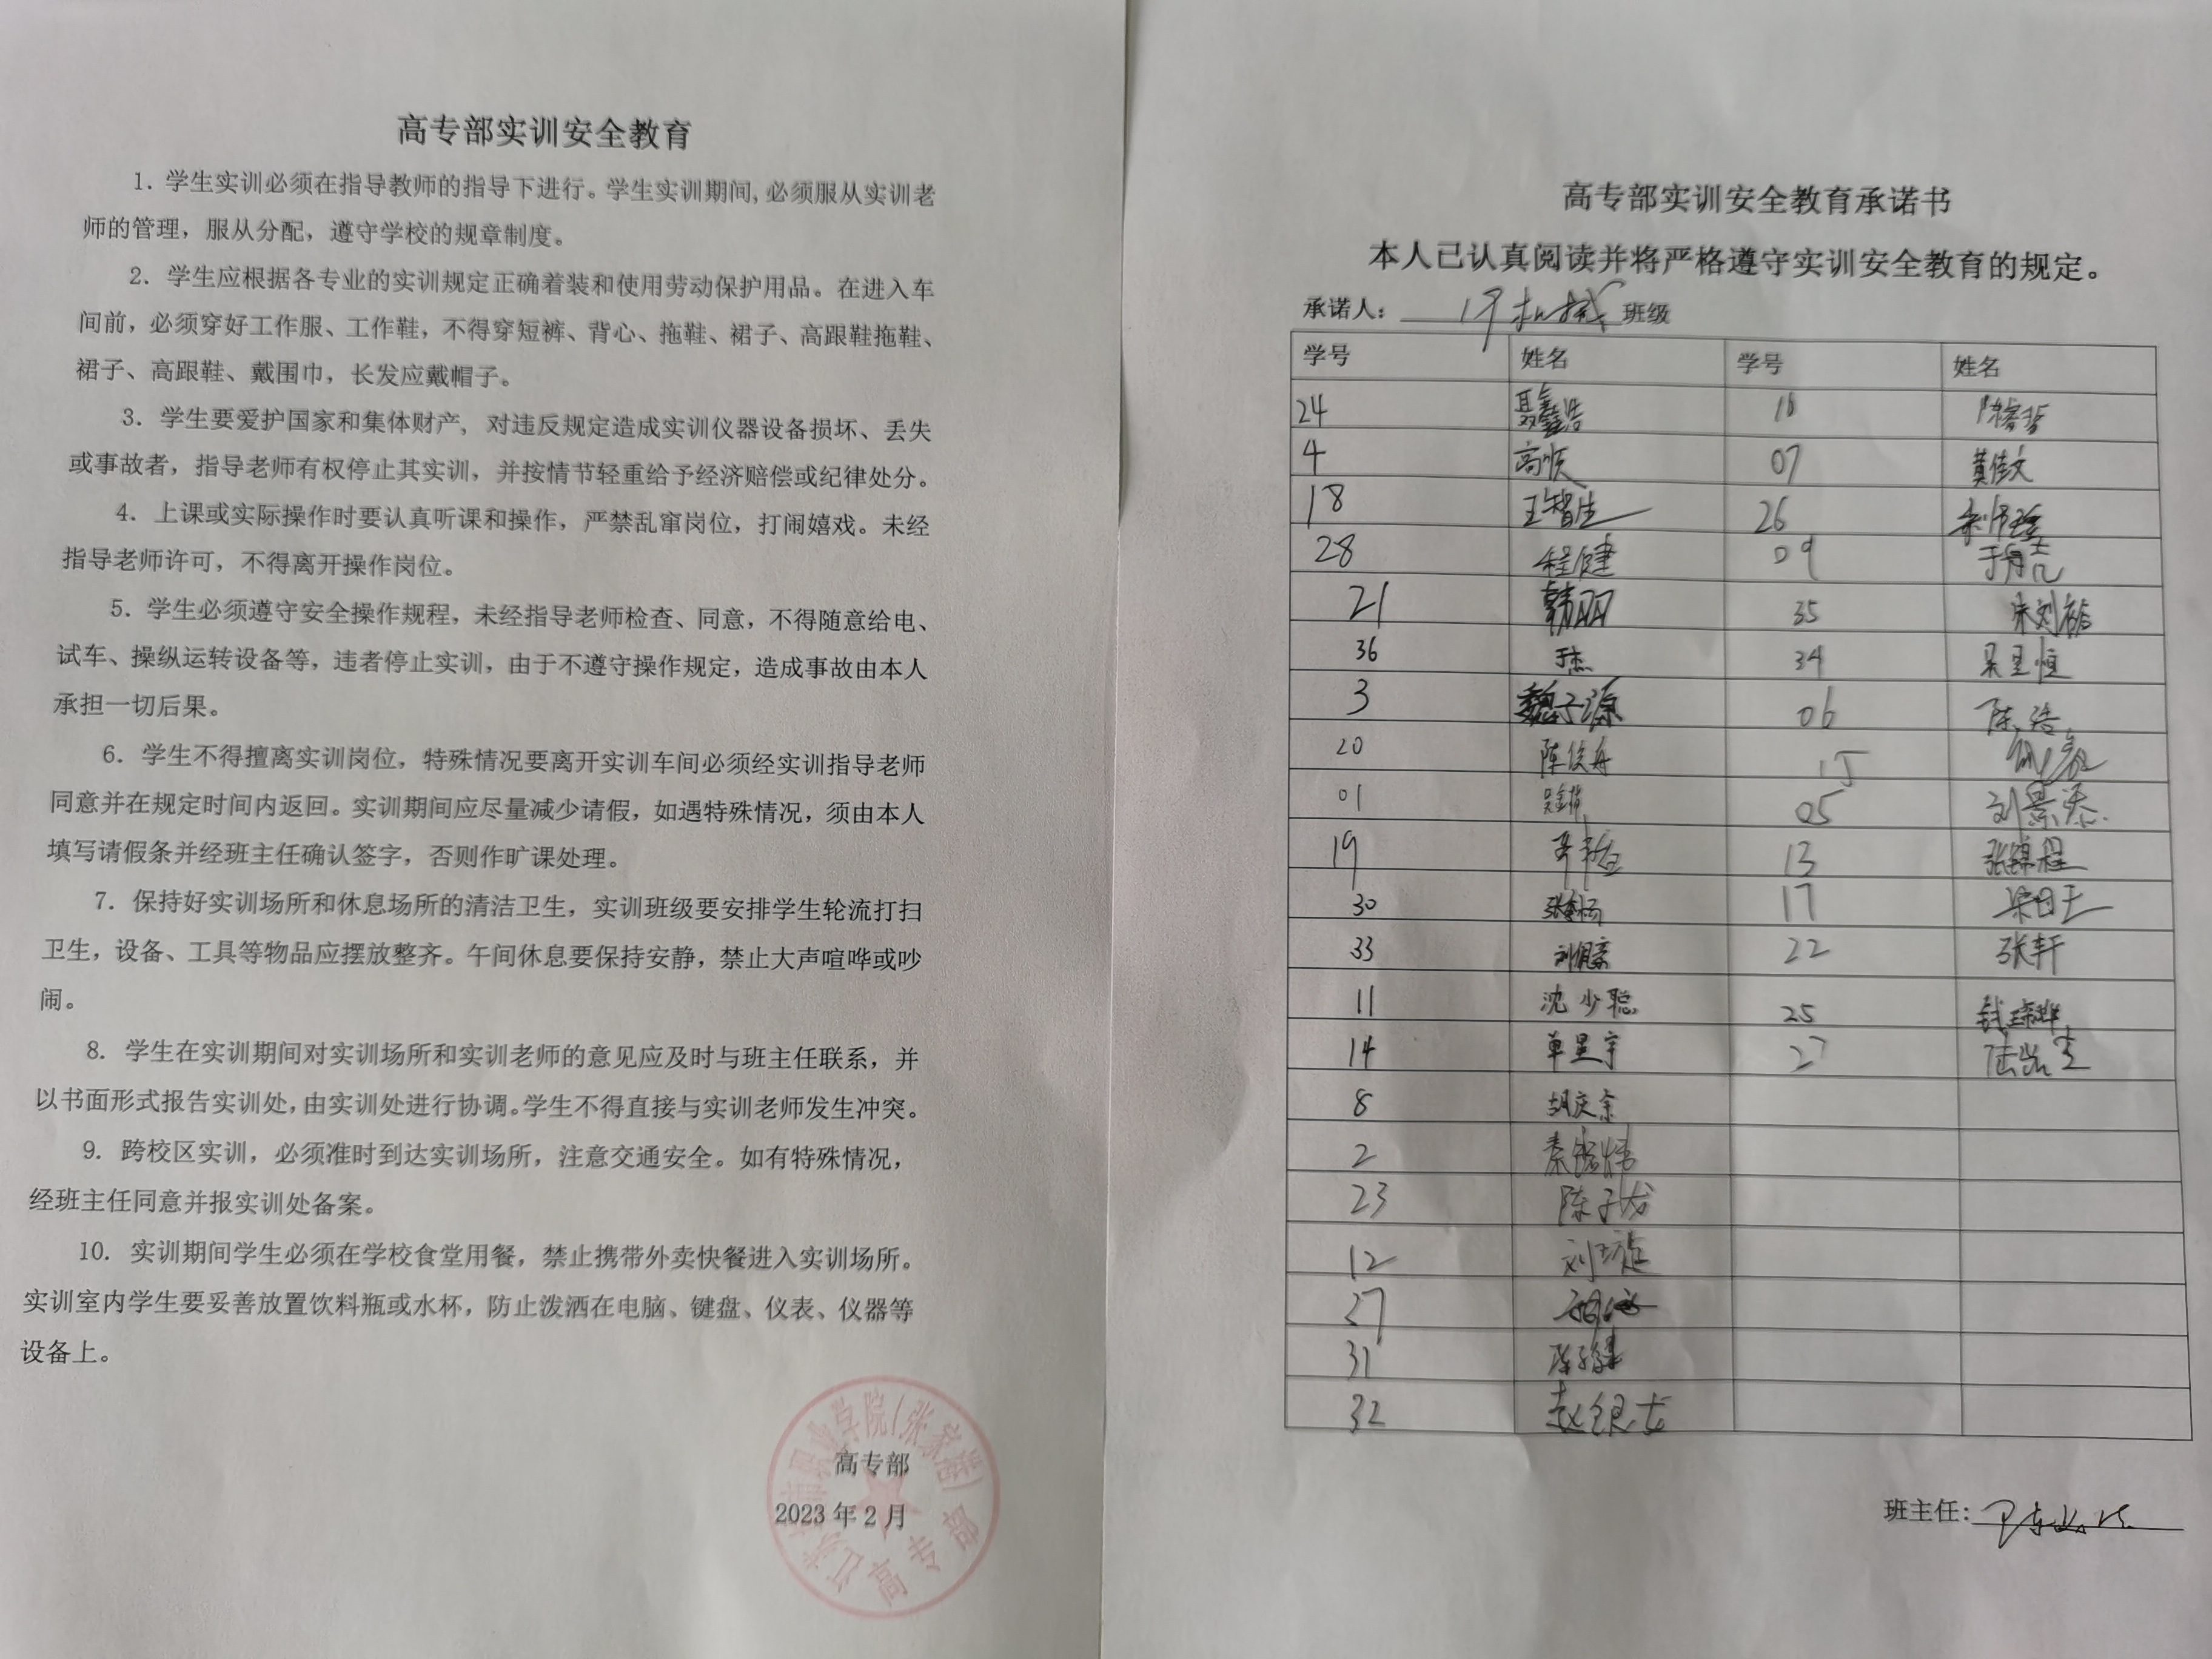 高专部实训安全教育
1. 学生实训必须在指导教师的指导下进行。学生实训期间, 必须服从实训老
师的管理，服从分配，遵守学校的规章制度。
2. 学生应根据各专业的实训规定正确着装和使用劳动保护用品。在进入车
间前，必须穿好工作服、工作鞋，不得穿短裤、背心、拖鞋、裙子、高跟鞋拖鞋、
裙子、高跟鞋、戴围巾，长发应戴帽子。
3. 学生要爱护国家和集体财产，对违反规定造成实训仪器设备损坏、丢失
或事故者，指导老师有权停止其实训，并按情节轻重给予经济赔偿或纪律处分。
4. 上课或实际操作时要认真听课和操作，严禁乱窜岗位，打闹嬉戏。未经
指导老师许可，不得离开操作岗位。
5. 学生必须遵守安全操作规程，未经指导老师检查、同意，不得随意给电、
试车、操纵运转设备等，违者停止实训，由于不遵守操作规定，造成事故由本人
承担一切后果。
6. 学生不得擅离实训岗位，特殊情况要离开实训车间必须经实训指导老师
同意并在规定时间内返回。实训期间应尽量减少请假，如遇特殊情况，须由本人
填写请假条并经班主任确认签字，否则作旷课处理。
7. 保持好实训场所和休息场所的清洁卫生，实训班级要安排学生轮流打扫
卫生，设备、工具等物品应摆放整齐。午间休息要保持安静，禁止大声喧哗或吵
闹。
8. 学生在实训期间对实训场所和实训老师的意见应及时与班主任联系，并
以书面形式报告实训处,由实训处进行协调。学生不得直接与实训老师发生冲突。
9. 跨校区实训，必须准时到达实训场所，注意交通安全。如有特殊情况，
经班主任同意并报实训处备案。
10. 实训期间学生必须在学校食堂用餐，禁止携带外卖快餐进入实训场所。
实训室内学生要妥善放置饮料瓶或水杯，防止泼洒在电脑、键盘、仪表、仪器等
设备上。
高专部
2023 年 2 月
高专部
高专部实训安全教育承诺书
本人已认真阅读并将严格遵守实训安全教育的规定。
承诺人： 机械 班级
学号 姓名 学号 姓名
24 聂鑫浩
4 高顺 07 黄佳文
18 王智生 26
28 程健 09
21 韩丽 35
36 于杰 34 吴星恒
3 魏子源 06 陈浩
20 陈俊舟 15
01 05 刘景添
19 13 张锦程
30 17
33 22 张轩
11 沈少聪 25
14 单星宇 27
8 胡庆余
2
23 陈子龙
12
27
31
32 赵银龙
班主任：